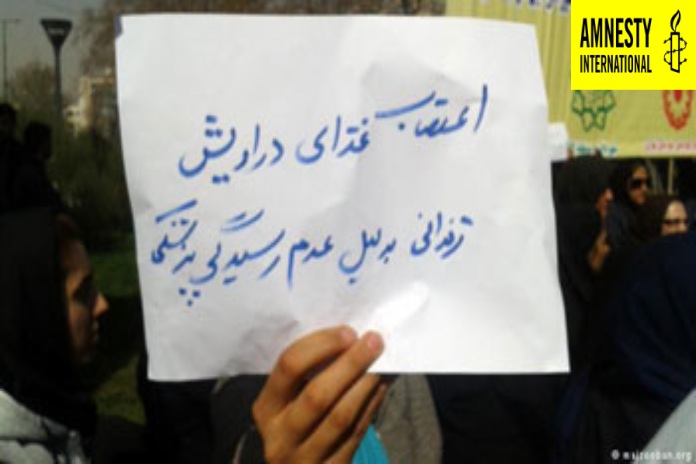 AMNESTY
INTERNATIONAL
اعتصاب غذای دراویش
زندانی به دلیل عدم رسیدگی پزشکی
© majzooban.org